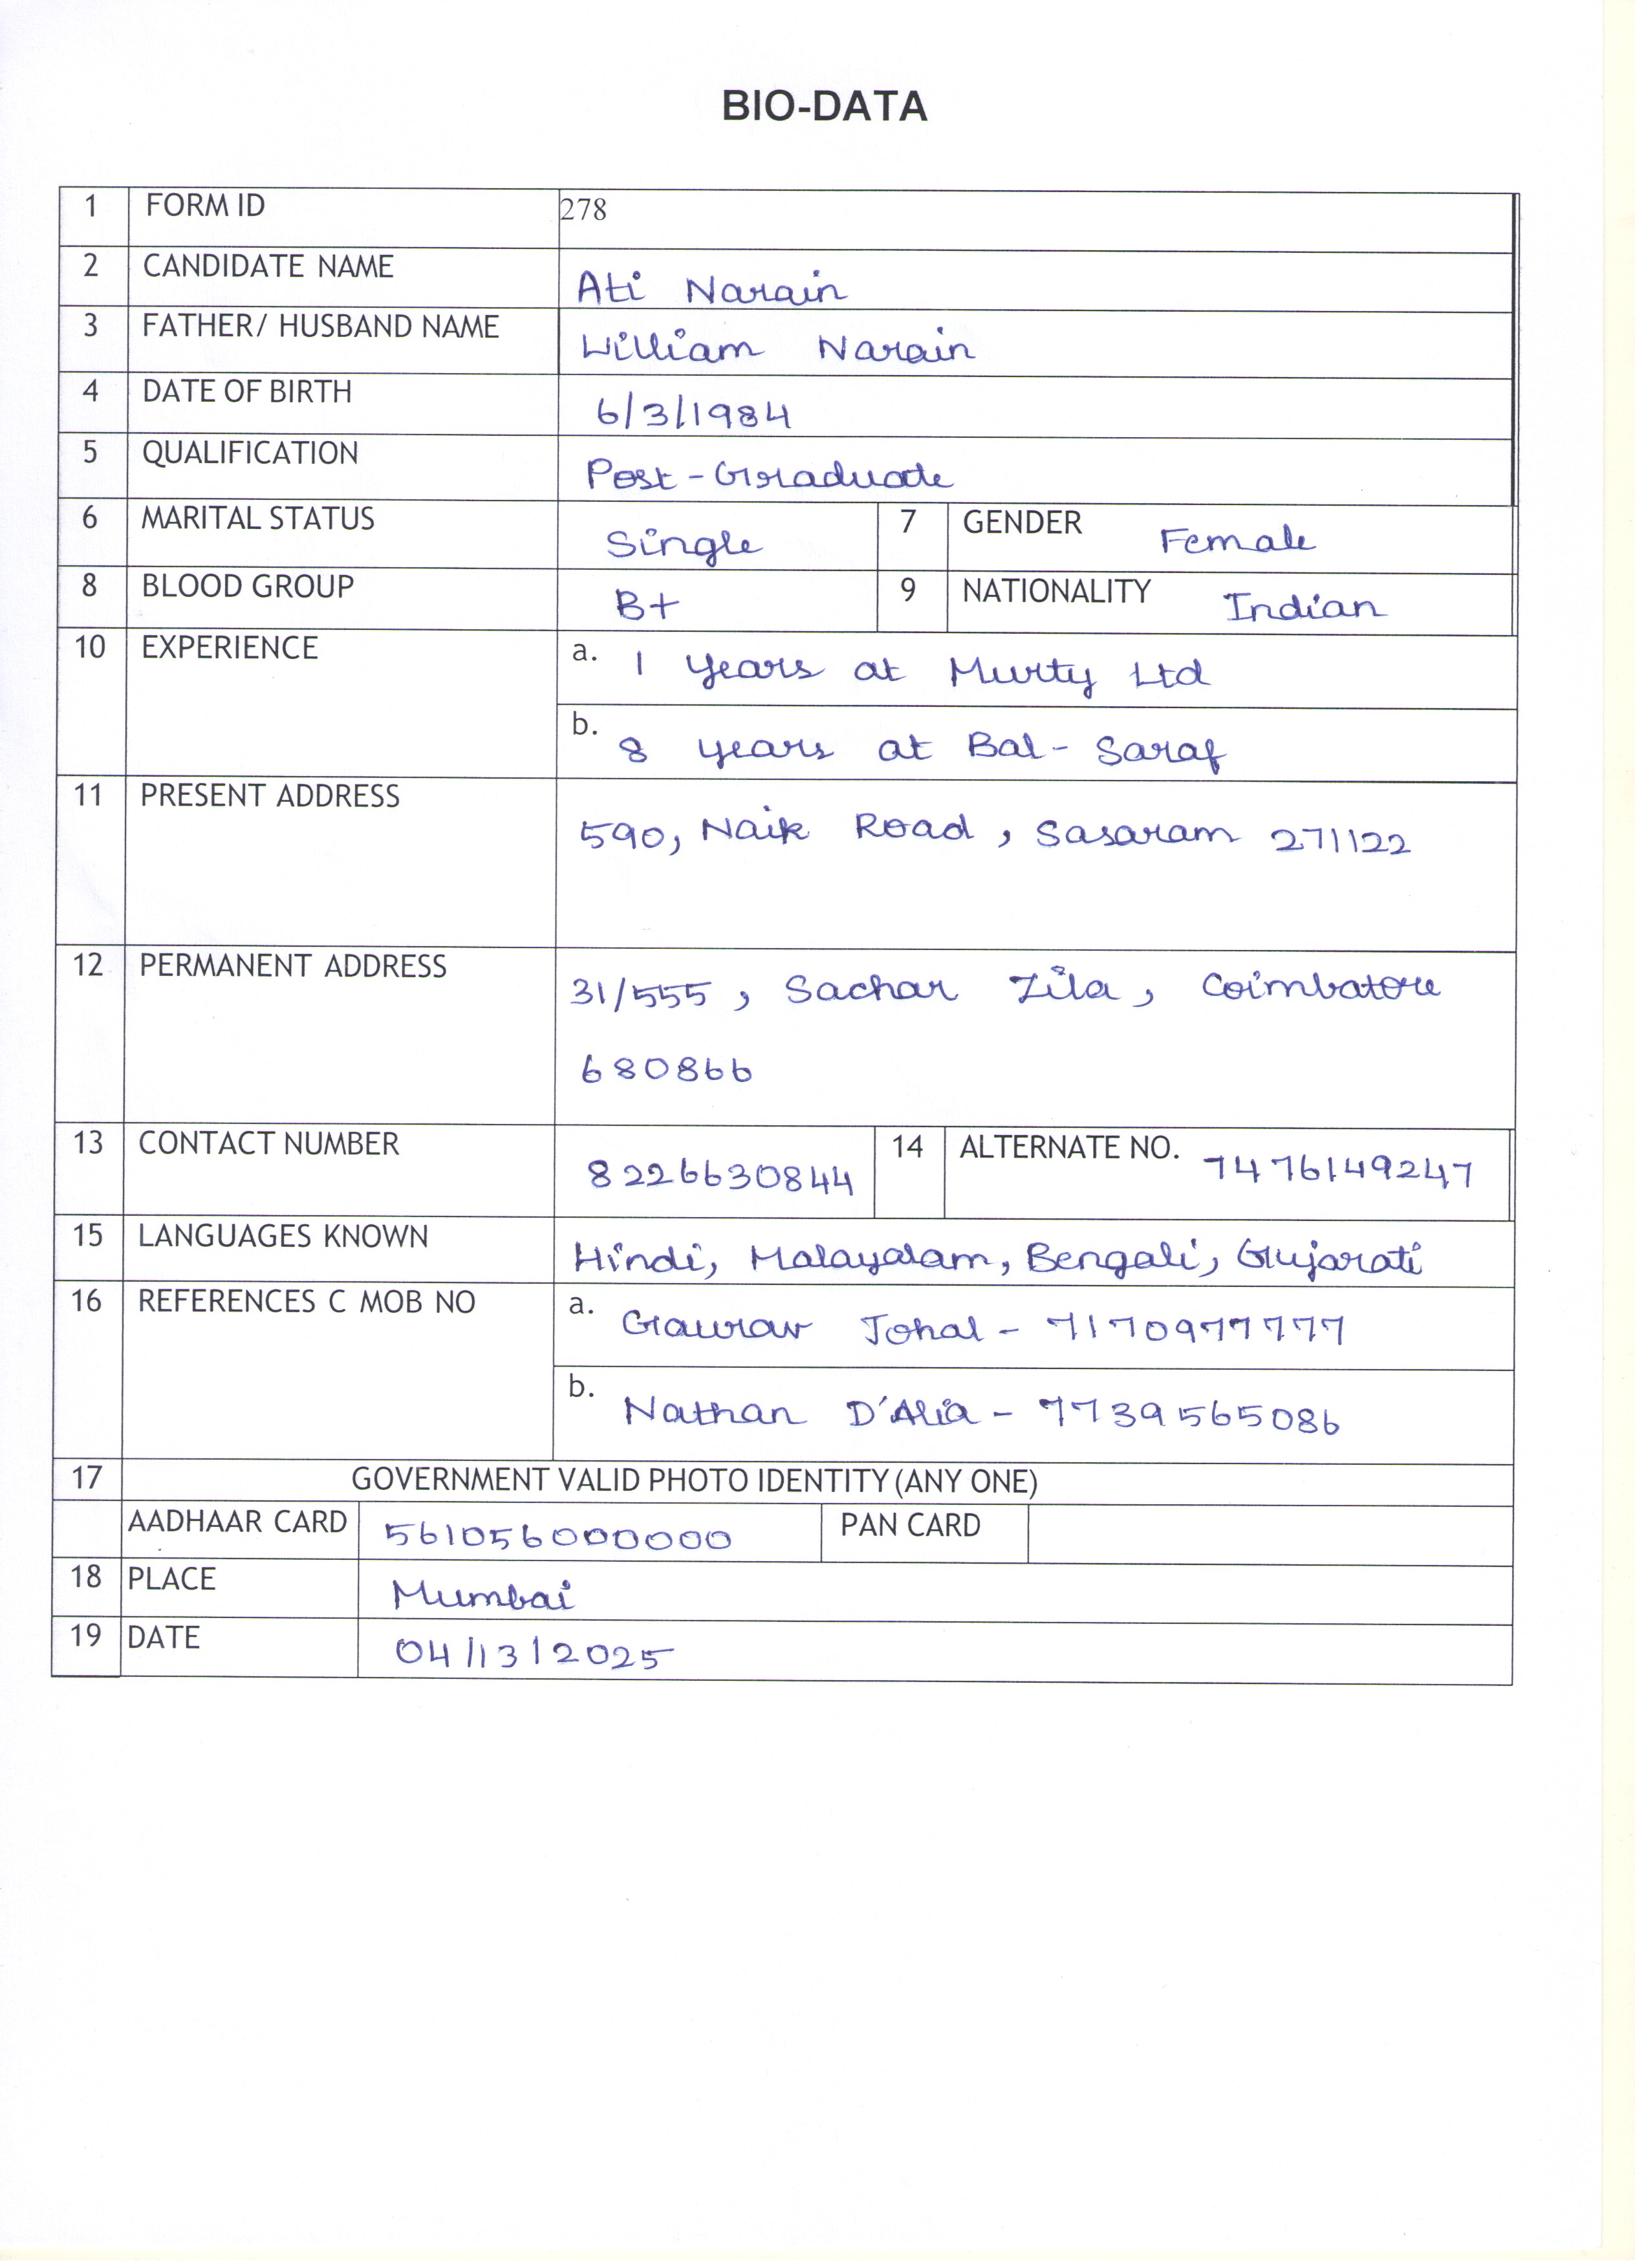 BIO-DATA
1 FORM ID 278
2 CANDIDATE NAME Ati Narain
3 FATHER/ HUSBAND NAME William Narain
4 DATE OF BIRTH 6/3/1984
5 QUALIFICATION Post-Graduate
6 MARITAL STATUS Single 7 GENDER Female
8 BLOOD GROUP B+ 9 NATIONALITY Indian
10 EXPERIENCE a. 1 years at Murty Ltd
b. 8 years at Bal-Saraf
11 PRESENT ADDRESS 590, Naik Road, Sasaram 271122
12 PERMANENT ADDRESS 31/555, Sachar Zila, Coimbatore
680866
13 CONTACT NUMBER 8226630844 14 ALTERNATE NO. 7476149247
15 LANGUAGES KNOWN Hindi, Malayalam, Bengali, Gujarati
16 REFERENCES C MOB NO a. Gaurav Johal - 7170977777
b. Nathan D'Alia - 7739565086
17 GOVERNMENT VALID PHOTO IDENTITY (ANY ONE)
AADHAAR CARD 561056000000 PAN CARD
18 PLACE Mumbai
19 DATE 04/13/2025